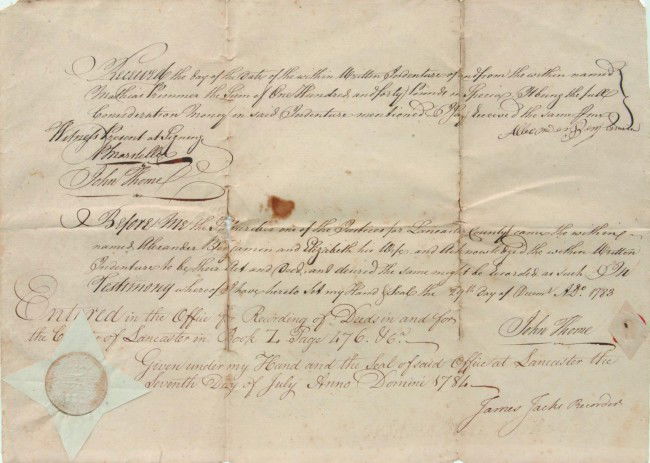 Received the day of the Date of the within Written Indenture of and from the within named
Mathias the Sum of One Hundred and forty Pounds in Specie It being the full
Consideration Money in said Indenture mentioned I say received the same
Alexander Benjamin
Witness Present at Signing
John Thome
Before Me the Subscriber one of the Justices for Lancaster County came the within
named Alexander Benjamin and Elizabeth his Wife and Acknowledged the within Written
Indenture to be their Act and Deed and desired the same might be recorded as such In
Testimony whereof I have hereto Set my Hand & Seal the day of A.D. 1783
John Thome
Entered in the Office for Recording of Deeds in and for
the County of Lancaster in Book Z Page 476 &c.
Given under my Hand and the Seal of said Office at Lancaster the
Seventh Day of July Anno Domini 1784
James Jacks Recorder